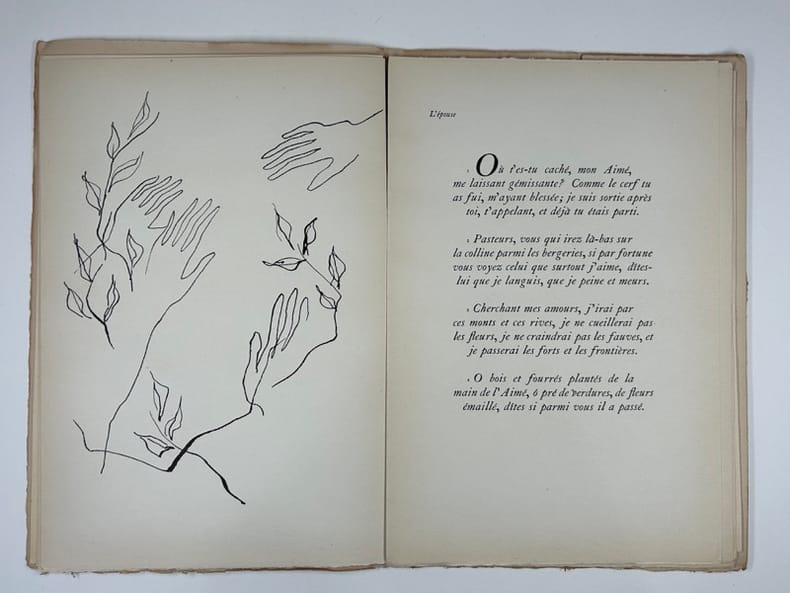 L'épouse
Où t'es-tu caché, mon Aimé,
me laissant gémissante? Comme le cerf tu
as fui, m'ayant blessée; je suis sortie après
toi, t'appelant, et déjà tu étais parti.
Pasteurs, vous qui irez là-bas sur
la colline parmi les bergeries, si par fortune
vous voyez celui que surtout j'aime, dîtes-
lui que je languis, que je peine et meurs.
Cherchant mes amours, j'irai par
ces monts et ces rives, je ne cueillerai pas
les fleurs, je ne craindrai pas les fauves, et
je passerai les forts et les frontières.
O bois et fourrés plantés de la
main de l'Aimé, ô pré de verdures, de fleurs
émaillé, dîtes si parmi vous il a passé.